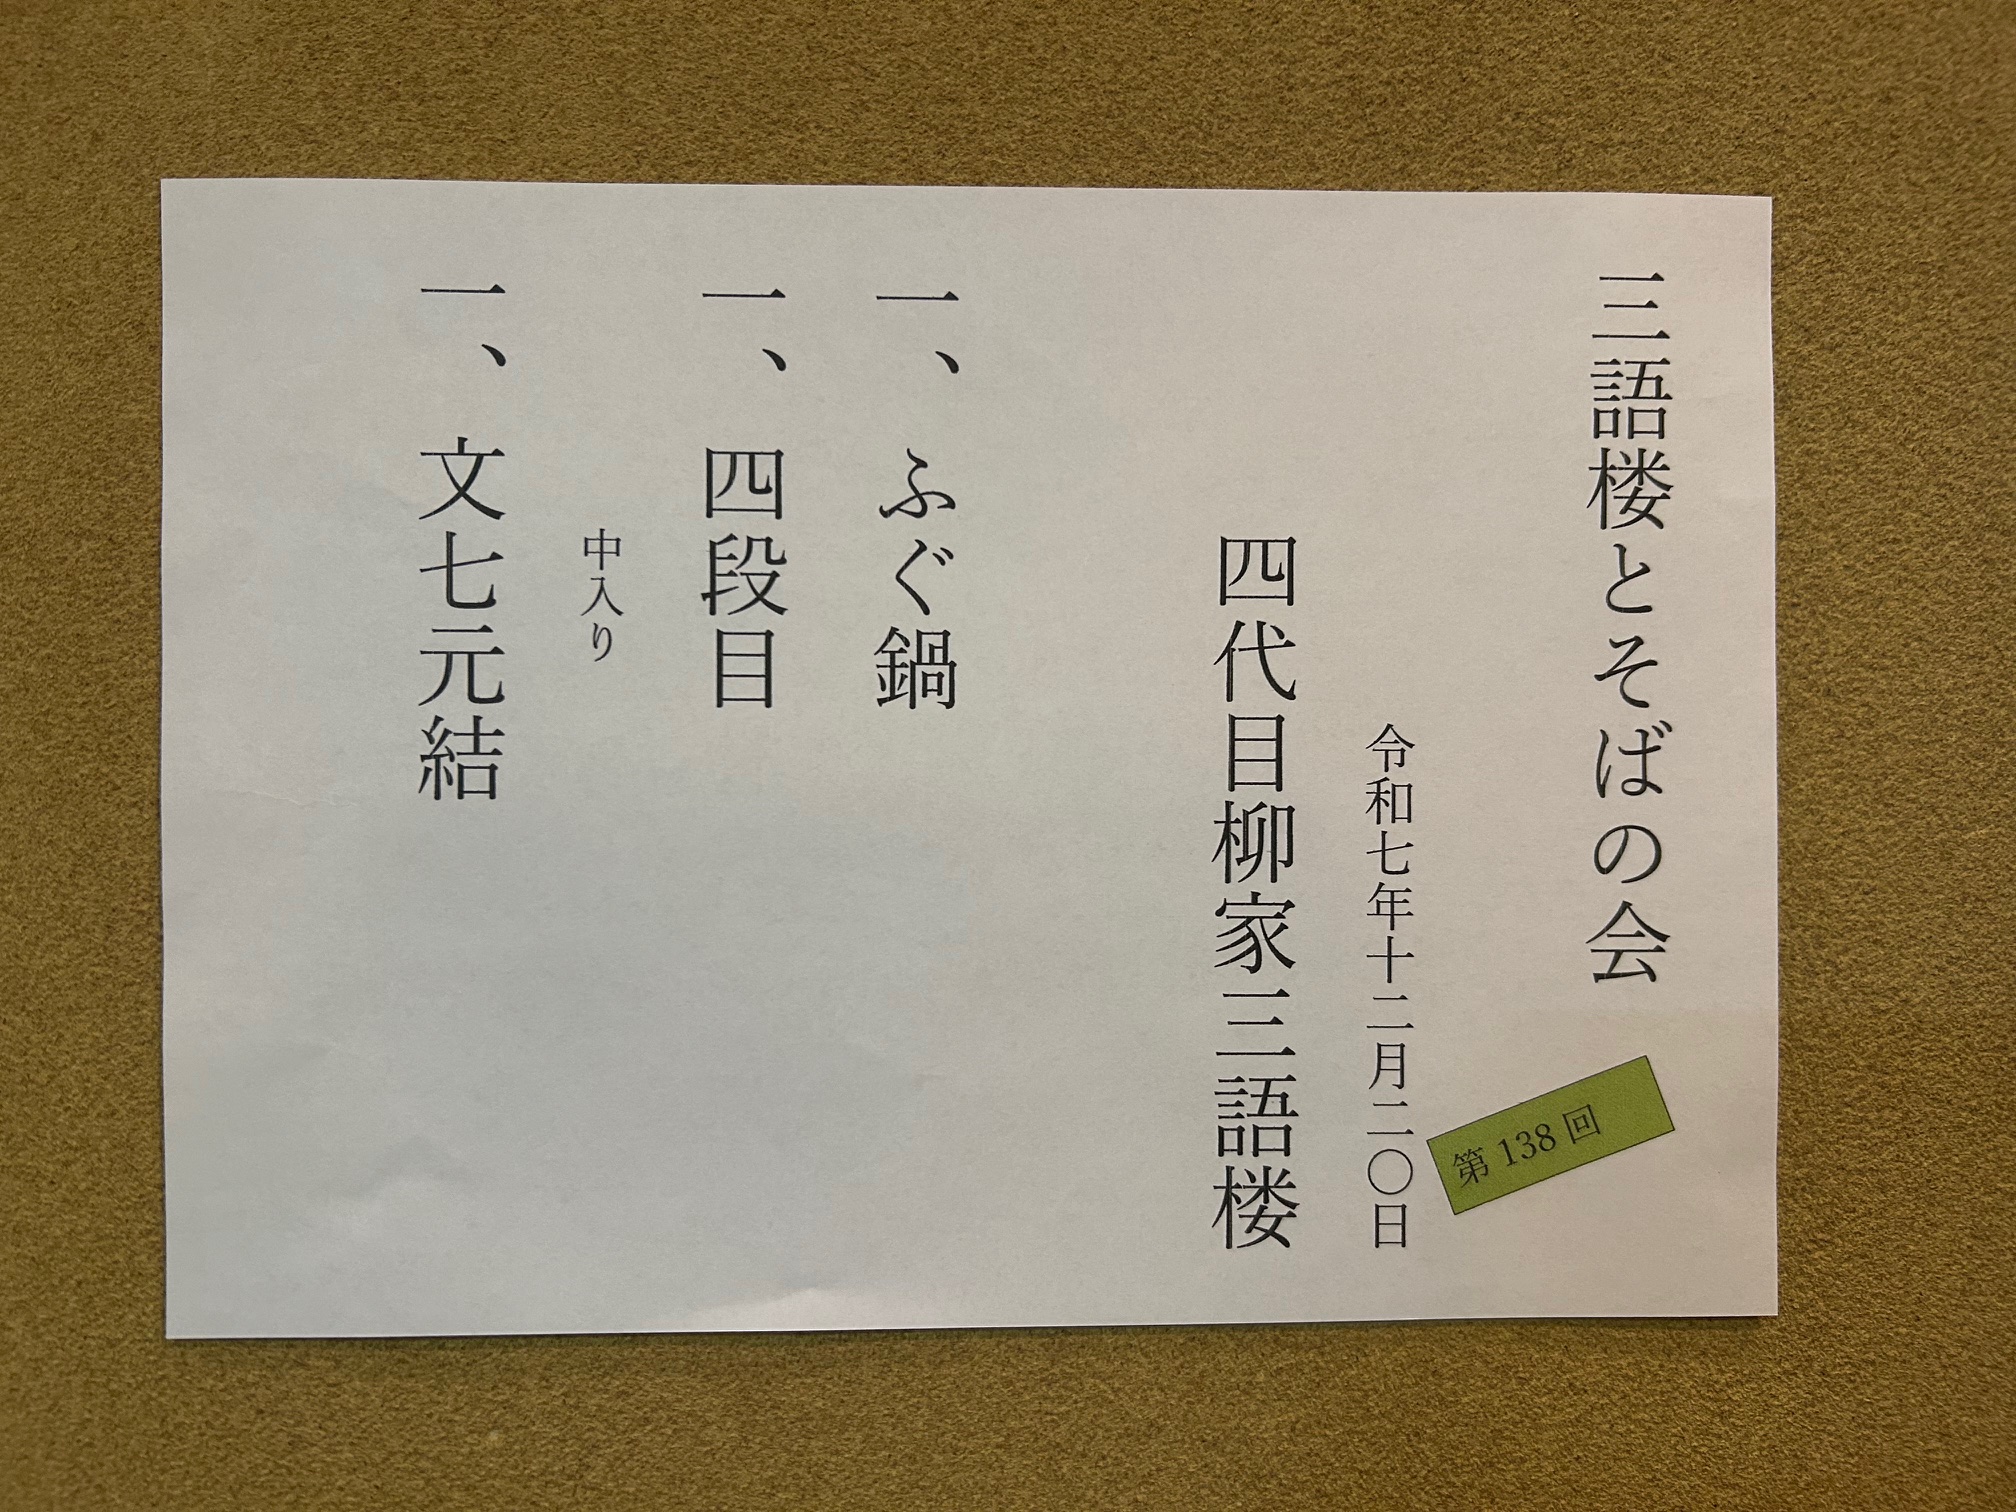 三語楼とそばの会
第138回
令和七年十二月二〇日
四代目柳家三語楼
一、ふぐ鍋
一、四段目
中入り
一、文七元結